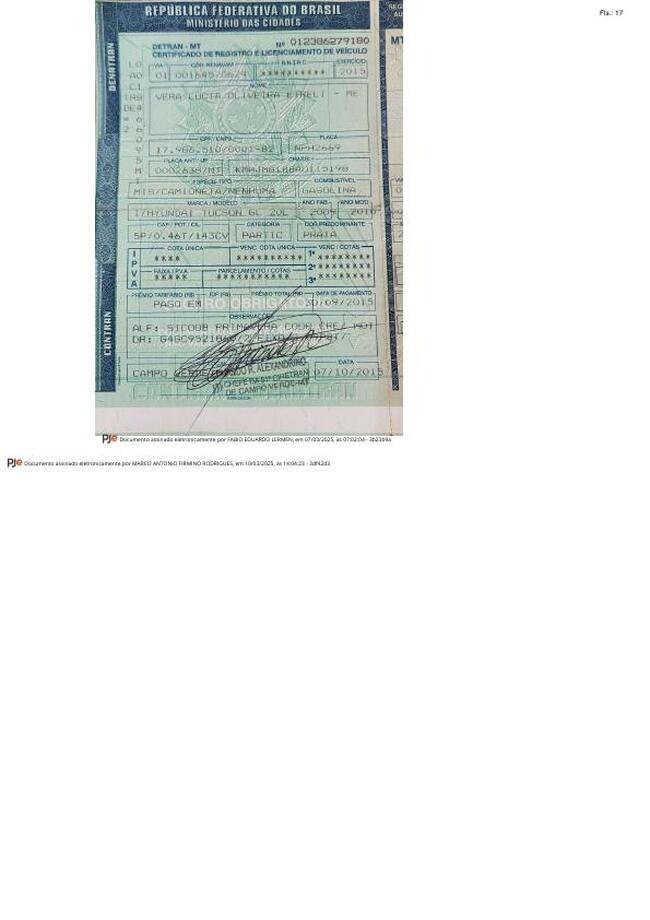 Fls.: 17
REPÚBLICA FEDERATIVA DO BRASIL
MINISTÉRIO DAS CIDADES
DENATRAN
DETRAN - MT Nº 012386279180
CERTIFICADO DE REGISTRO E LICENCIAMENTO DE VEÍCULO
VIA CÓD. RENAVAM R.N.T.R.C. EXERCÍCIO
01 ********** 2015
NOME
VERA LUCIA OLIVEIRA EIRELI - ME
CPF / CNPJ PLACA
17.986.510/0001-82
PLACA ANT / UF CHASSI
ESPÉCIE TIPO COMBUSTÍVEL
MIS/CAMIONETA/NENHUMA GASOLINA
MARCA / MODELO ANO FAB. ANO MOD.
I/HYUNDAI TUCSON GL 20L 2009 2010
CAP / POT / CIL CATEGORIA COR PREDOMINANTE
5P/0.46T/143CV PARTIC PRATA
IPVA
COTA ÚNICA VENC. COTA ÚNICA VENC / COTAS
**** ********* 1ª ********
FAIXA I.P.V.A. PARCELAMENTO / COTAS 2ª ********
***** *********** 3ª ********
PRÊMIO TARIFÁRIO (R$) IOF (R$) PRÊMIO TOTAL (R$) DATA DE PAGAMENTO
PAGO EM 30/09/2015
SEGURO OBRIGATÓRIO
OBSERVAÇÕES
ALF: SICOOB PRIMAVERA COOP CRE/ MOT
CONTRAN
R. ALEXANDRINO
CHEFE DA 51ª CIRETRAN
DE CAMPO VERDE-MT
CAMPO VERDE DATA 07/10/2015
PJe Documento assinado eletronicamente por FABIO EDUARDO LERMEN, em 07/03/2025, às 07:02:04 - 3b23b9a
PJe Documento assinado eletronicamente por MARCO ANTONIO FIRMINO RODRIGUES, em 10/03/2025, às 14:04:23 - 3df42d3